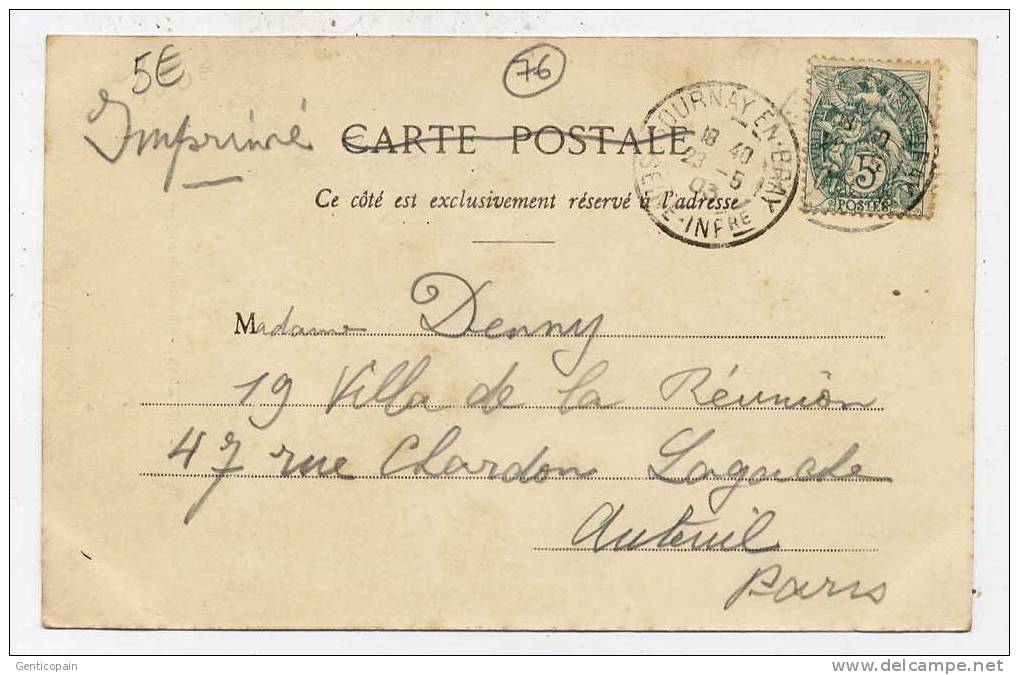 5E
76
Imprimé
CARTE POSTALE
Ce côté est exclusivement réservé à l'adresse
GOURNAY-EN-BRAY
18 40
23 -5
03
SEINE-INFRE
5
POSTES
Madame Denny
19 Villa de la Réunion
47 rue Chardon Lagache
Auteuil
Paris
Genticopain
http://www.delcampe.net